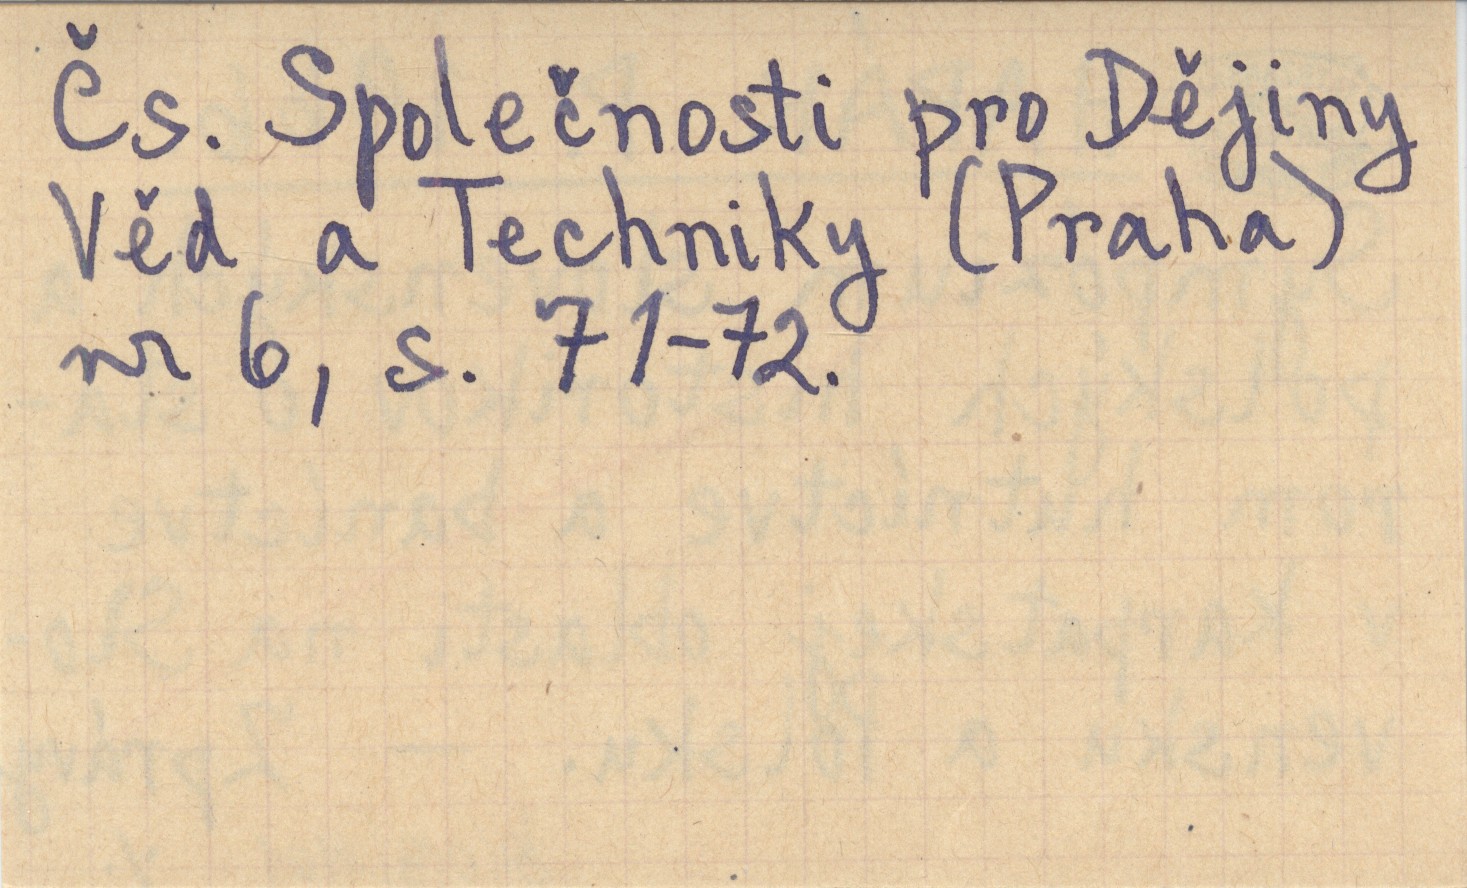 Čs. Společnosti pro Dějiny
Věd a Techniky (Praha)
nr 6, s. 71-72.